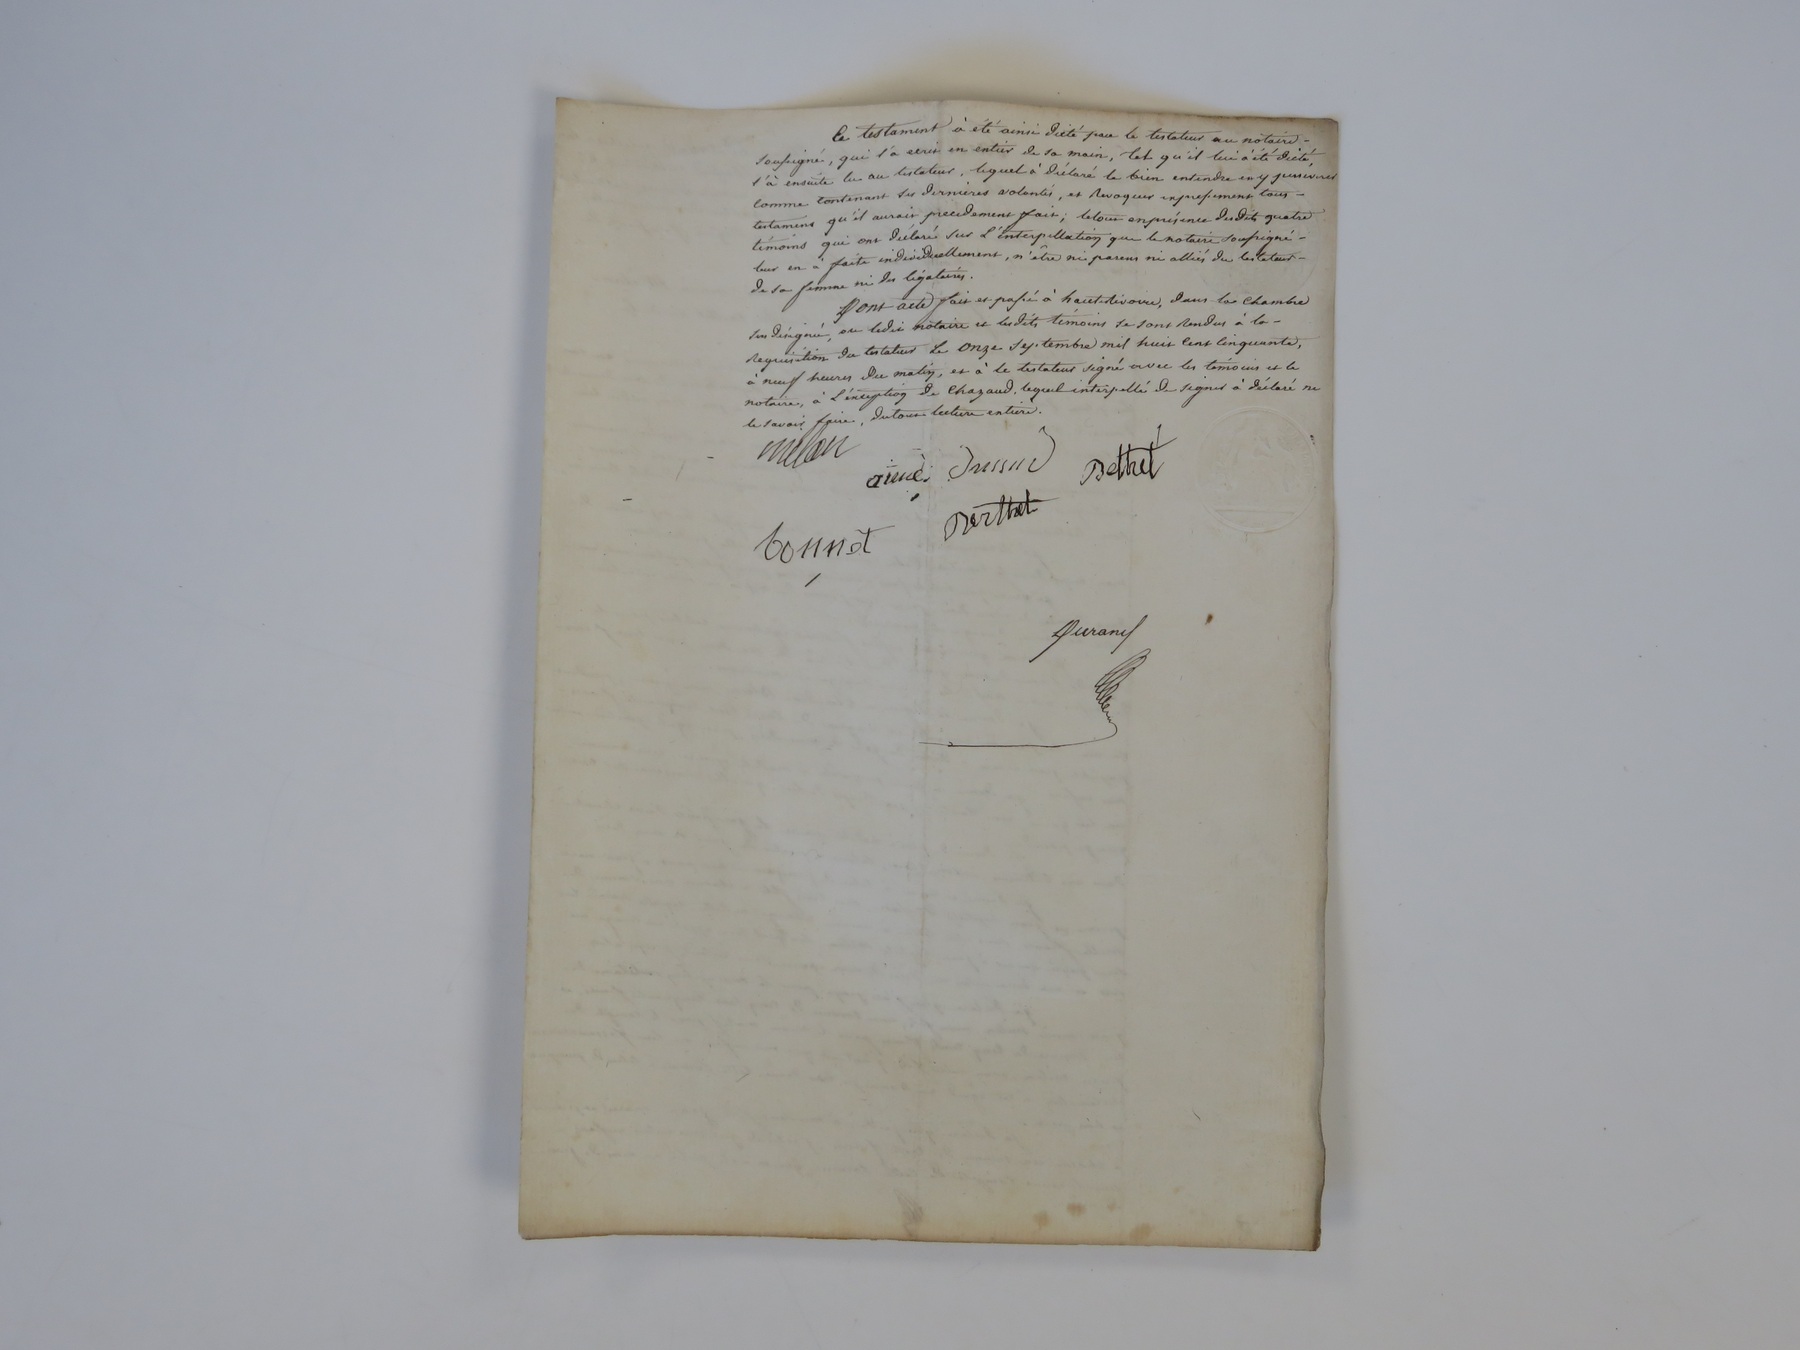 Ce testament à été ainsi dicté par le testateur au notaire -
soussigné, qui l'a ecrit en entier de sa main, tel qu'il lui à été dicté,
l'à ensuite lu au testateur, lequel à déclaré le bien entendre et y persévérer
comme contenant ses dernières volontés, et révoquer expressement tous -
testamens qu'il aurait précédemment fait; letout enprésence desdits quatre
témoins qui ont déclaré sur L'interpellation que le notaire soussigné -
leur en à faite individuellement, n'être ni parens ni alliés du testateur -
de sa femme ni des légataires.
Dont acte fait et passé à hauterivoire, dans la chambre
sus désignée, ou ledit notaire et lesdits témoins se sont rendus à la -
requisition du testateur Le onze septembre mil huit cent cinquante,
à neuf heures du matin, et à le testateur signé avec les témoins et le
notaire, à L'exception de Chazaud, lequel interpellé de signer à déclaré ne
le savoir faire, dutout lecture entière.
aimé Dussud Bethet
Berthet
bonnet
Durand